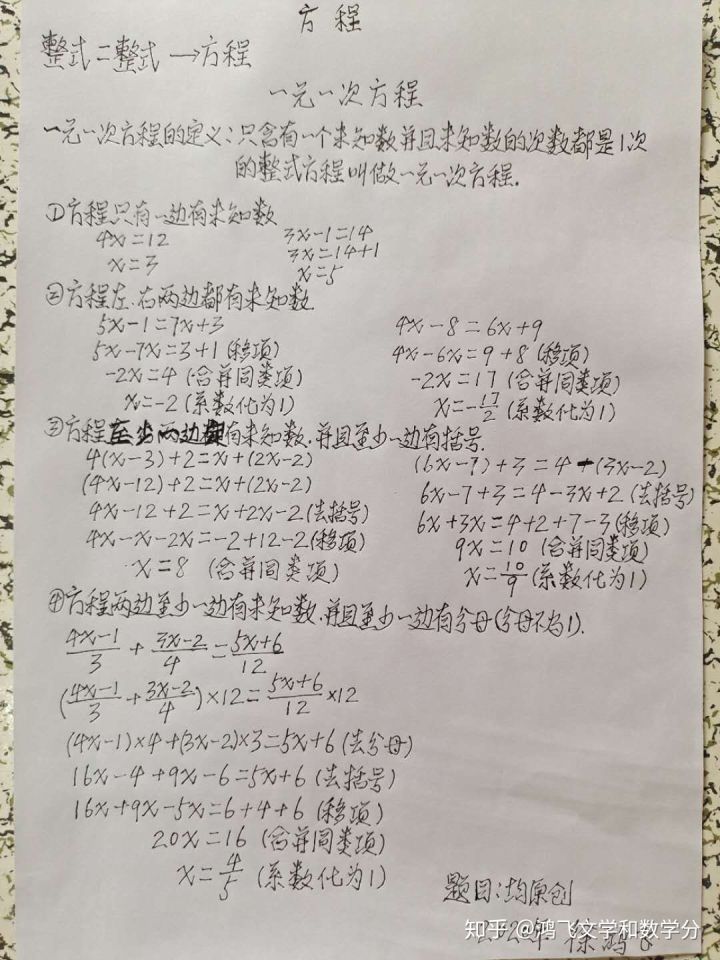 方程
整式=整式→方程
一元一次方程
一元一次方程的定义:只含有一个未知数并且未知数的次数都是1次
的整式方程叫做一元一次方程.
①方程只有一边有未知数
4x=12 3x-1=14
x=3 3x=14+1
x=5
②方程左、右两边都有未知数
5x-1=7x+3 4x-8=6x+9
5x-7x=3+1(移项) 4x-6x=9+8(移项)
-2x=4(合并同类项) -2x=17(合并同类项)
x=-2(系数化为1) x=-17/2(系数化为1)
③方程两边有未知数,并且至少一边有括号.
4(x-3)+2=x+(2x-2) (6x-7)+3=4-(3x-2)
(4x-12)+2=x+(2x-2) 6x-7+3=4-3x+2(去括号)
4x-12+2=x+2x-2(去括号) 6x+3x=4+2+7-3(移项)
4x-x-2x=-2+12-2(移项) 9x=10(合并同类项)
x=8(合并同类项) x=10/9(系数化为1)
④方程两边至少一边有未知数,并且至少一边有分母(分母不为1).
(4x-1)/3+(3x-2)/4=(5x+6)/12
((4x-1)/3+(3x-2)/4)×12=(5x+6)/12×12
(4x-1)×4+(3x-2)×3=5x+6(去分母)
16x-4+9x-6=5x+6(去括号)
16x+9x-5x=6+4+6(移项)
20x=16(合并同类项)
x=4/5(系数化为1)
题目:均原创
徐鸿飞
知乎@鸿飞文学和数学分